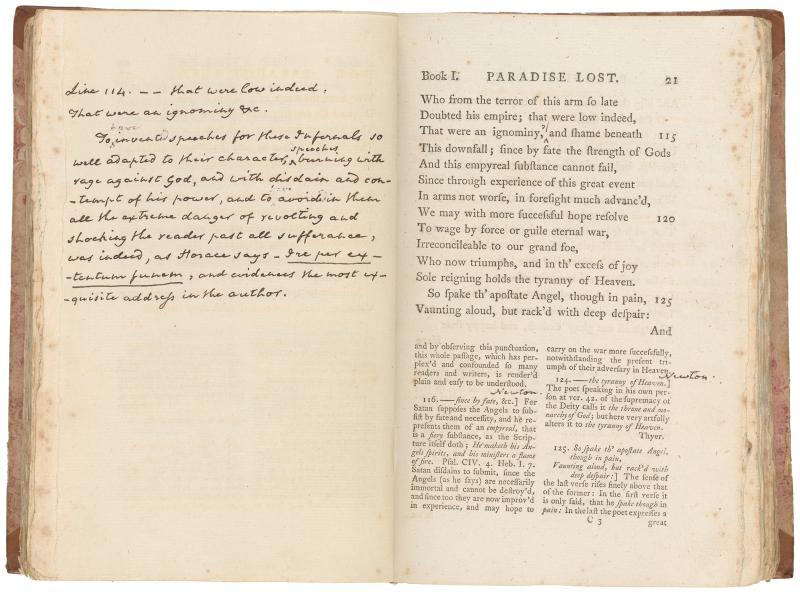 Line 114. – – that were low indeed,
That were an ignominy &c.
have
To invented speeches for these Infernals so
speeches
well adapted to their character, burning with
rage against God, and with disdain and con-
-tempt of his power, and to avoid in them
have
all the extreme danger of revolting and
shocking the reader past all sufferance,
was indeed, as Horace says – Ire per ex-
-tentum funem, and evidences the most ex-
-quisite address in the author.
Book I. PARADISE LOST. 21
Who from the terror of this arm ſo late
Doubted his empire; that were low indeed,
That were an ignominy, and ſhame beneath 115
This downfall; ſince by fate the ſtrength of Gods
And this empyreal ſubſtance cannot fail,
Since through experience of this great event
In arms not worſe, in foreſight much advanc'd,
We may with more ſucceſsful hope reſolve 120
To wage by force or guile eternal war,
Irreconcileable to our grand foe,
Who now triumphs, and in th' exceſs of joy
Sole reigning holds the tyranny of Heaven.
So ſpake th' apoſtate Angel, though in pain, 125
Vaunting aloud, but rack'd with deep deſpair:
And
and by obſerving this punctuation,
this whole paſſage, which has per-
plex'd and confounded ſo many
readers and writers, is render'd
plain and eaſy to be underſtood.
Newton.
116. —ſince by fate, &c.] For
Satan ſuppoſes the Angels to ſub-
ſiſt by fate and neceſſity, and he re-
preſents them of an empyreal, that
is a fiery ſubſtance, as the Scrip-
ture itſelf doth; He maketh his An-
gels ſpirits, and his miniſters a flame
of fire. Pſal. CIV. 4. Heb. I. 7.
Satan diſdains to ſubmit, ſince the
Angels (as he ſays) are neceſſarily
immortal and cannot be deſtroy'd,
and ſince too they are now improv'd
in experience, and may hope to
carry on the war more ſucceſsfully,
notwithſtanding the preſent tri-
umph of their adverſary in Heaven.
Newton.
124. —the tyranny of Heaven.]
The poet ſpeaking in his own per-
ſon at ver. 42. of the ſupremacy of
the Deity calls it the throne and mo-
narchy of God; but here very artfully
alters it to the tyranny of Heaven.
Thyer.
125. So ſpake th' apoſtate Angel,
though in pain,
Vaunting aloud, but rack'd with
deep deſpair:] The ſenſe of
the laſt verſe riſes finely above that
of the former: In the firſt verſe it
is only ſaid, that he ſpake though in
pain: In the laſt the poet expreſſes a
C 3 great